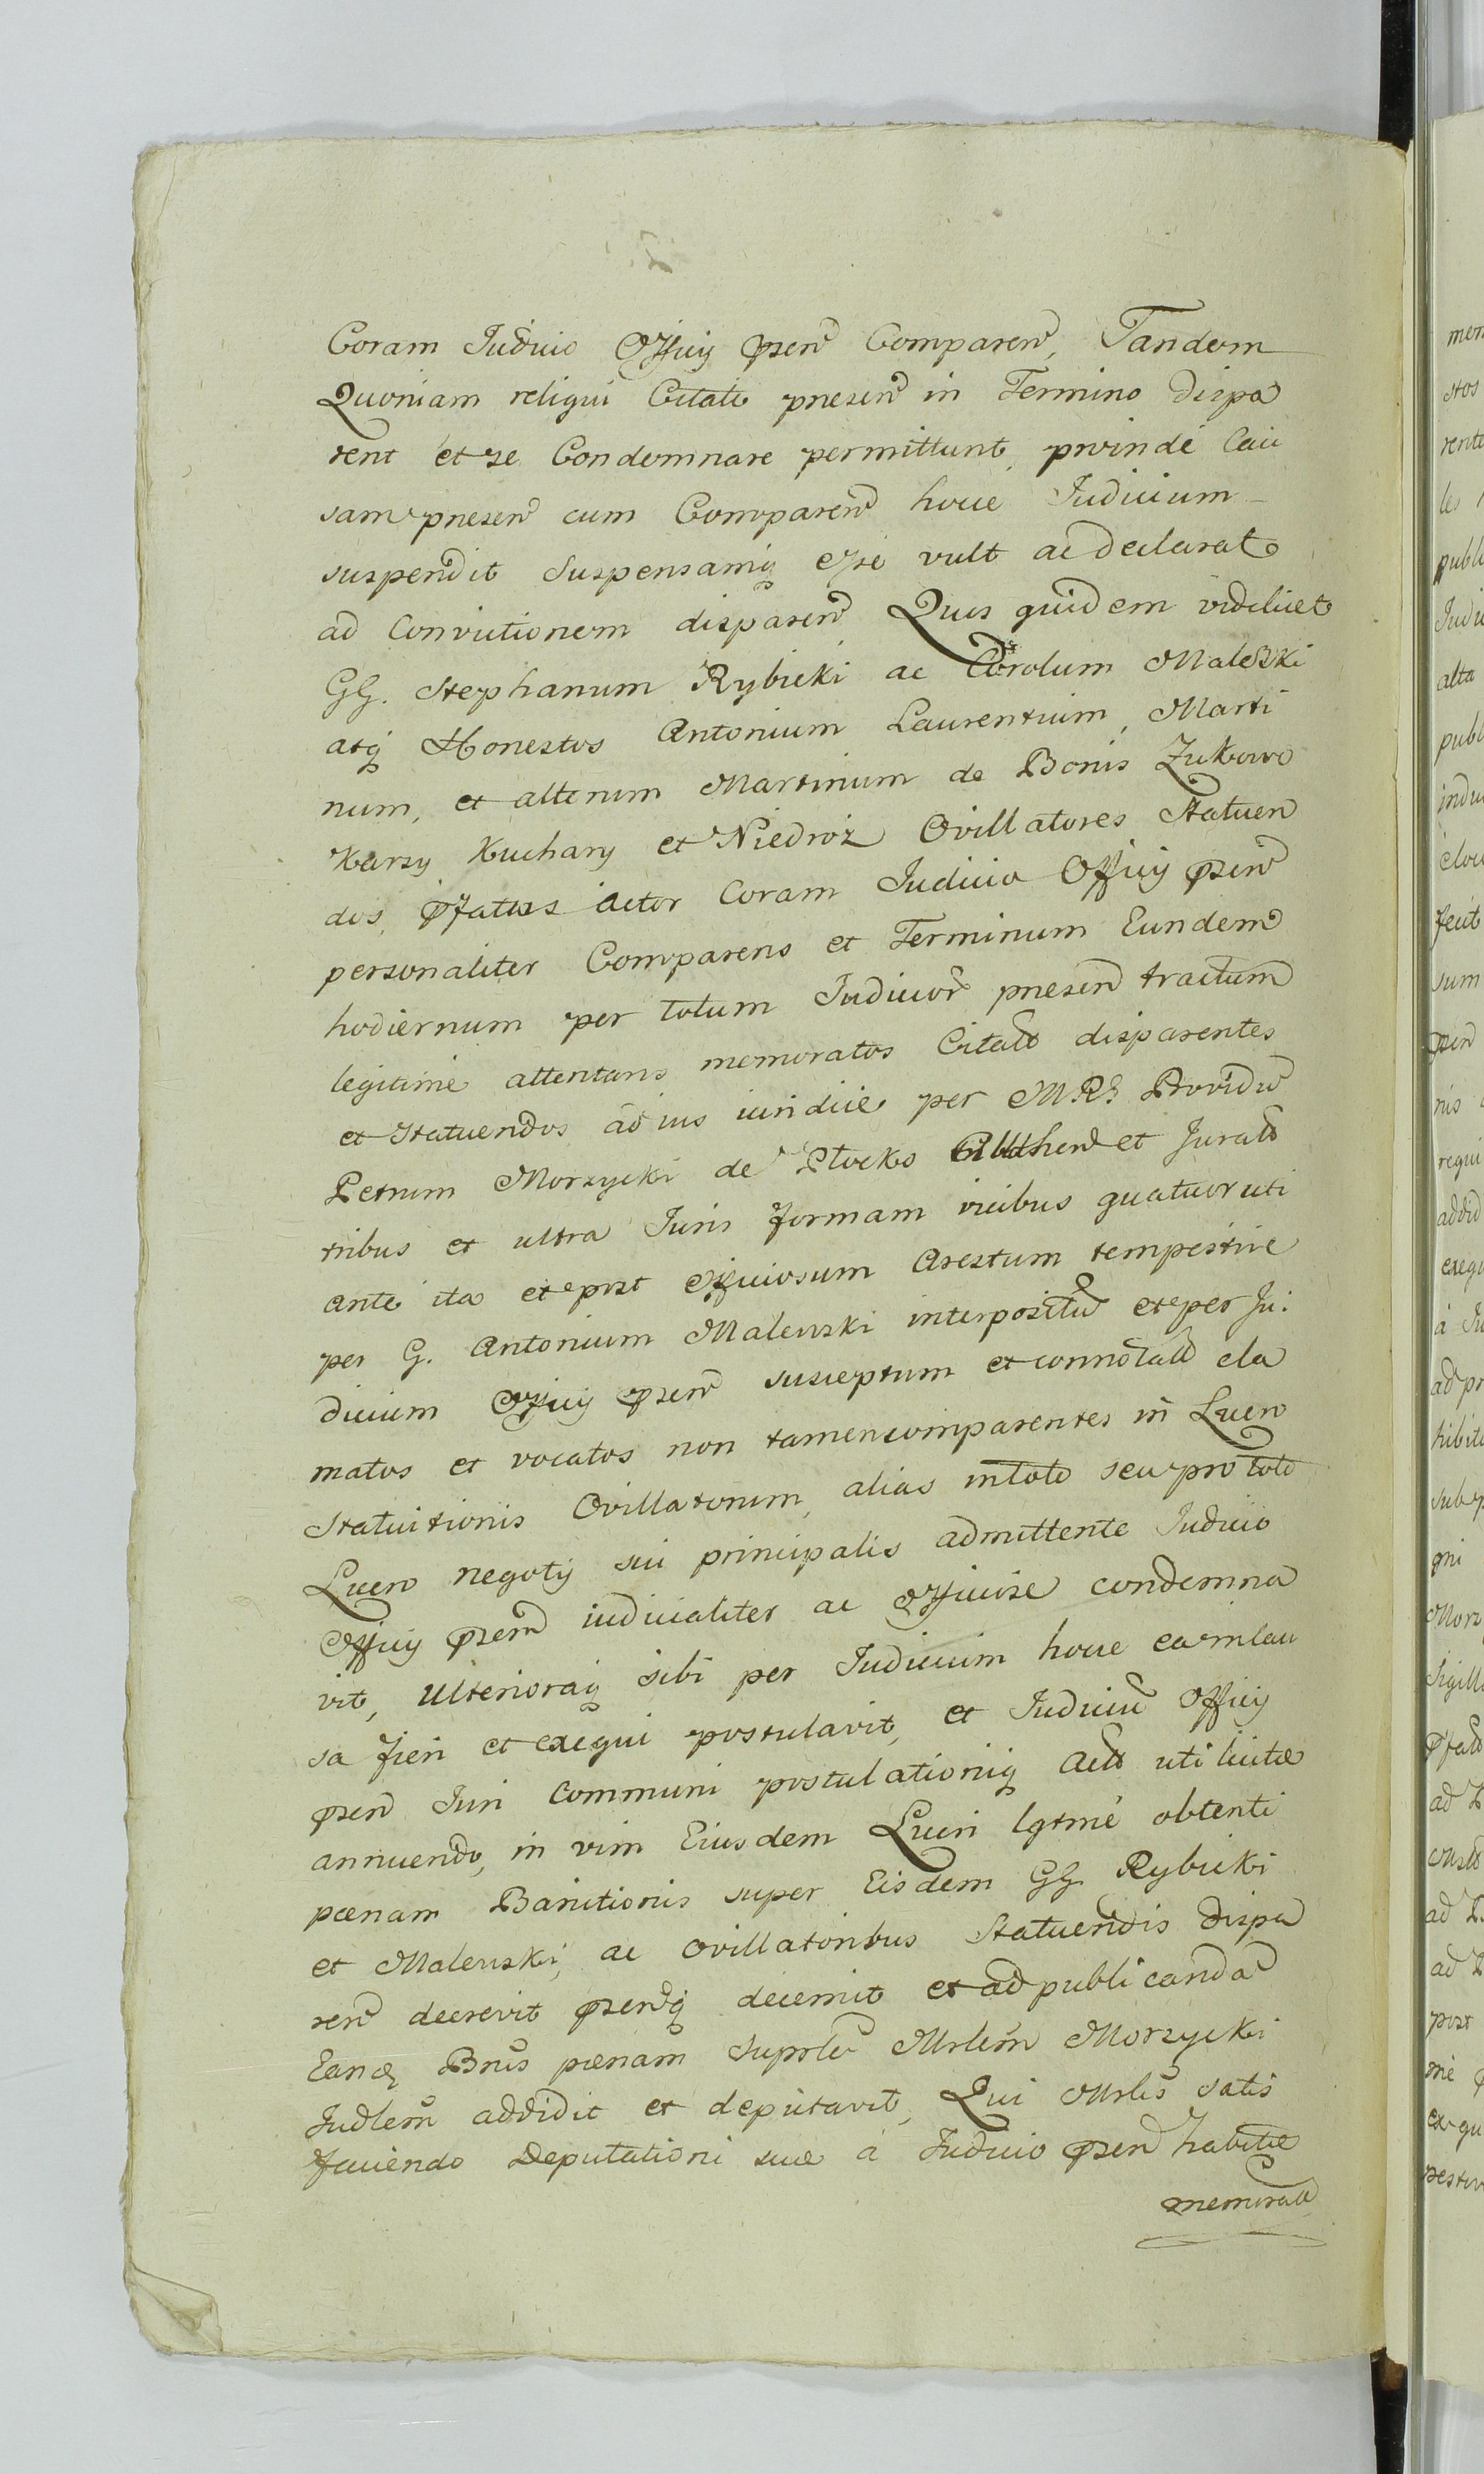 Coram Iudicio Officij psen Comparen, Tandem
Quoniam reliqui Citati presen in Termino dispa
rent et se Condemnare permittunt, proinde Cau
sam presen cum Comparen hocce Iudicium
suspendit Suspensamq esse vult ac declarat
ad Convictionem disparen Quos quidem videlicet
GG. Stephanum Rybicki ac Carolum Malewski
atq Honestos Antonium Laurentium, Marti
num, et alterum Martinum de Bonis Zukowo
Karsy Kuchary et Niedroż Ovillatores Statuen
dos, pfatus actor Coram Iudicio Officij psen
personaliter Comparens et Terminum Eundem
hodiernum per totum Iudicior presen tractum
legitime attentans memoratos Citatt disparentes
et Statuendos ad ius iuridice per MRG Providu
Petrum Morzycki de Plocko et Juratt
tribus et ultra Iuris formam vicibus quatuor uti
ante ita et post officiosum Arestum tempestive
per G. Antonium Malewski interpositu et per Ju:
dicium Officij psen susceptum et connotatt cla
matos et vocatos non tamen comparentes in Lucro
Statuitionis Ovillatorum, alias in toto seu pro toto
Lucro negotij sui principalis admittente Iudicio
Officij psen iudicialiter ac officiose condemna
vit, Ulterioraq sibi per Iudicium hocce ea in Cau
sa fieri et exequi postulavit, et Iudiciu Officij
psen Iuri communi postulationiq Actt uti licitæ
annuendo, in vim Eiusdem Lucri lgtme obtenti
pœnam Banitionis super Eisdem GG. Rybicki
et Malewski, ac ovillatoribus Statuendis dispa
ren decrevit psenq decernit et ad publicanda
Eanq Bnis pœnam Suprle Mrlem Morzycki
Judlem addidit et deputavit, Qui Mrlis satis
faciendo Deputationi suæ à Iudicio psen habitæ
memoratt
mem
stos
rente
les
publ
Iudi
alta
publ
indu
feut
sum
psen
nis
requi
addid
exequ
à Iu
ad pr
hibit
sub p
Morz
Sigill
pfatt
ad
ad
ad
post
mè
ex qu
pestiv